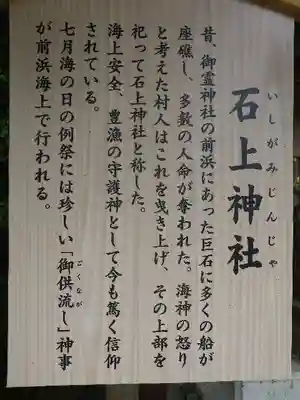 石上神社
いしがみじんじゃ
昔、御霊神社の前浜にあった巨石に多くの船が
座礁し、多数の人命が奪われた。海神の怒り
と考えた村人はこれを曳き上げ、その上部を
祀って石上神社と称した。
海上安全、豊漁の守護神として今も篤く信仰
されている。
七月海の日の例祭には珍しい「御供流し」神事
ごくなが
が前浜海上で行われる。